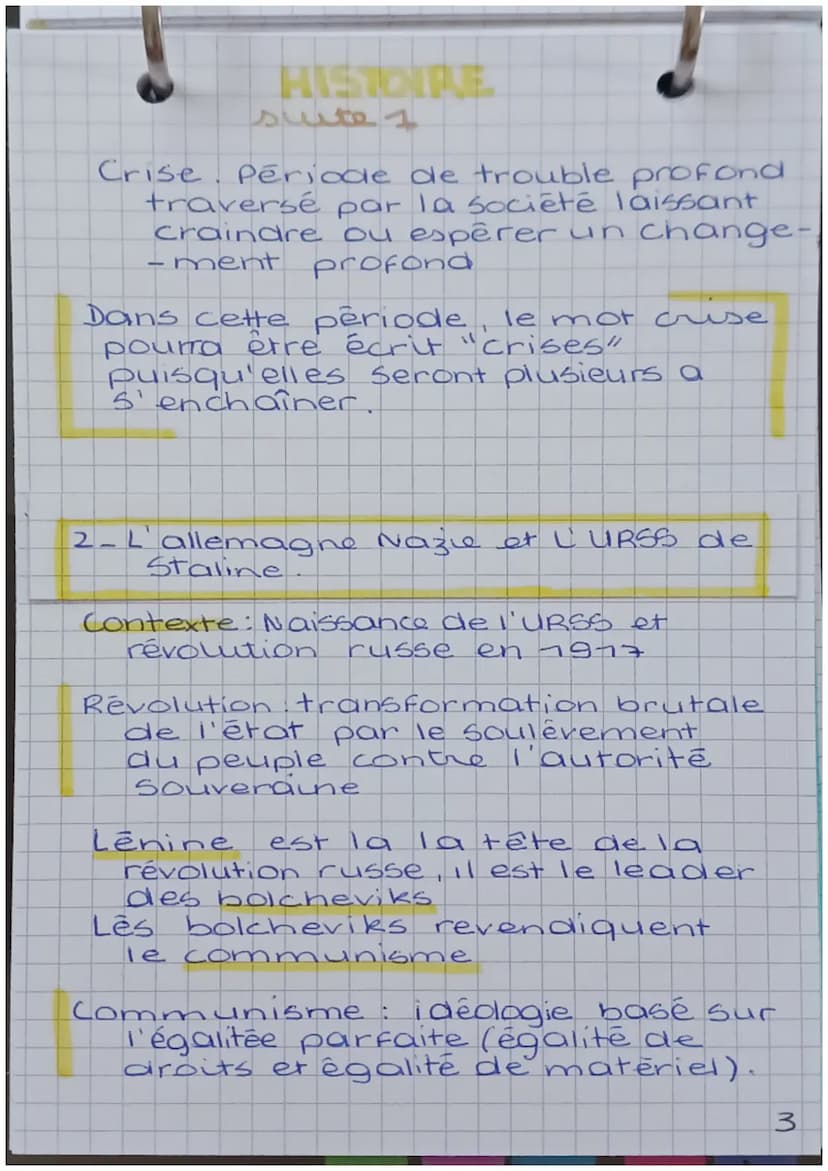 HISTOIRE
suite 1
Crise. Période de trouble profond
traversé par la société laissant
craindre ou espérer un change-
-ment profond
Dans cette période, le mot crise
pourra être écrit "crises"
puisqu'elles seront plusieurs a
s'enchaîner.
2-L'allemagne Nazie et L'URSS de
Staline.
Contexte: Naissance de l'URSS et
révolution russe en 1917
Révolution: transformation brutale
de l'état par le soulèvement
du peuple contre l'autorité
souveraine
Lénine est la la tête de la
révolution russe, il est le leader
des bolcheviks
Lès bolcheviks revendiquent
le communisme
Communisme: idéologie basé sur
l'égalitée parfaite (égalité de
droits et égalité de matériel).
3